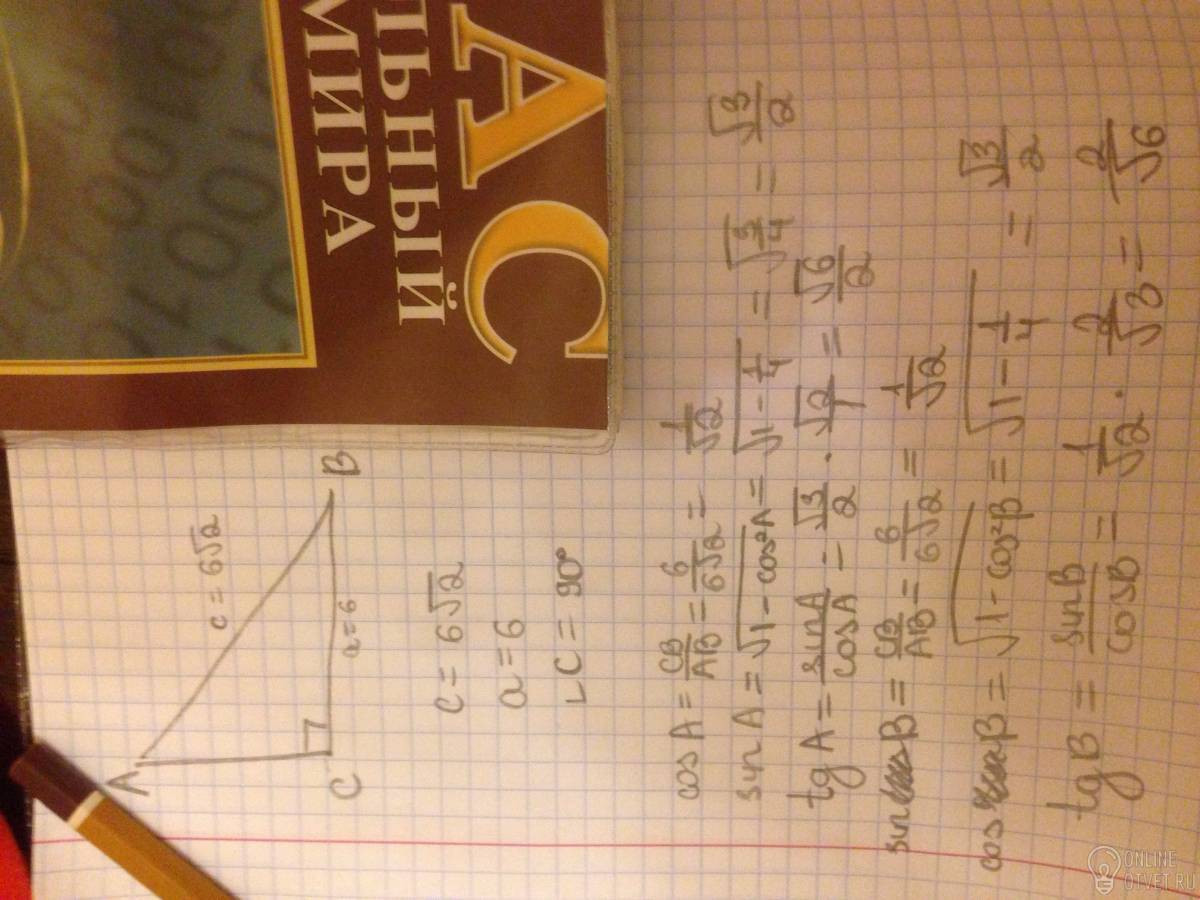 АС
ЛЬНЫЙ
МИРА
A
c = 6√2
a = 6
C
B
c = 6√2
a = 6
∟C = 90°
cos A = CB/AB = 6/6√2 = 1/√2
sin A = √(1 - cos²A) = √(1 - 1/4) = √(3/4) = √3/2
tg A = sin A/cos A - √3/2 · √2/1 = √6/2
sin B = CB/AB = 6/6√2 = 1/√2
cos B = √(1 - cos²B) = √(1 - 1/4) = √3/2
tg B = sin B/cos B = 1/√2 · 2/√3 = 2/√6
ONLINE
OTVET.RU